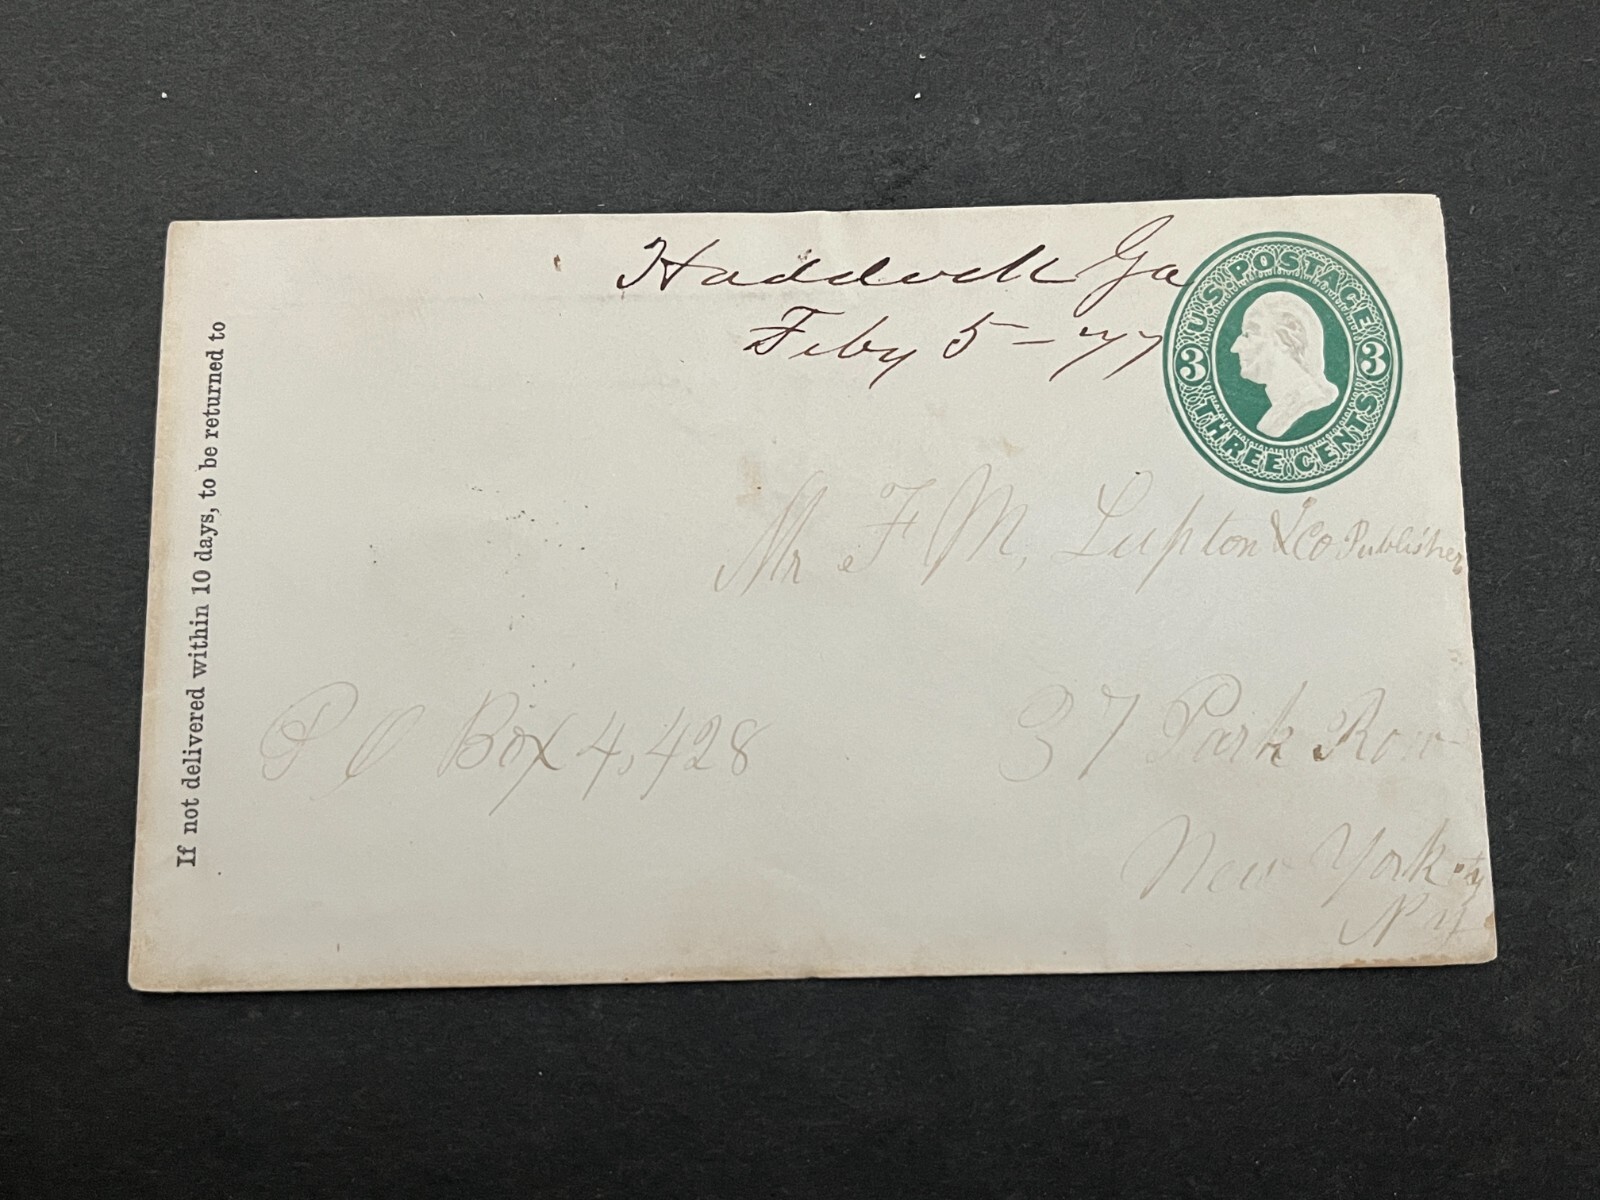 Haddock Ga
Feby 5 - 77
U.S. POSTAGE
3 3
THREE CENTS
If not delivered within 10 days, to be returned to
Mr F M, Lupton & Co Publisher
P O Box 4,428
37 Park Row
New York ty
N Y